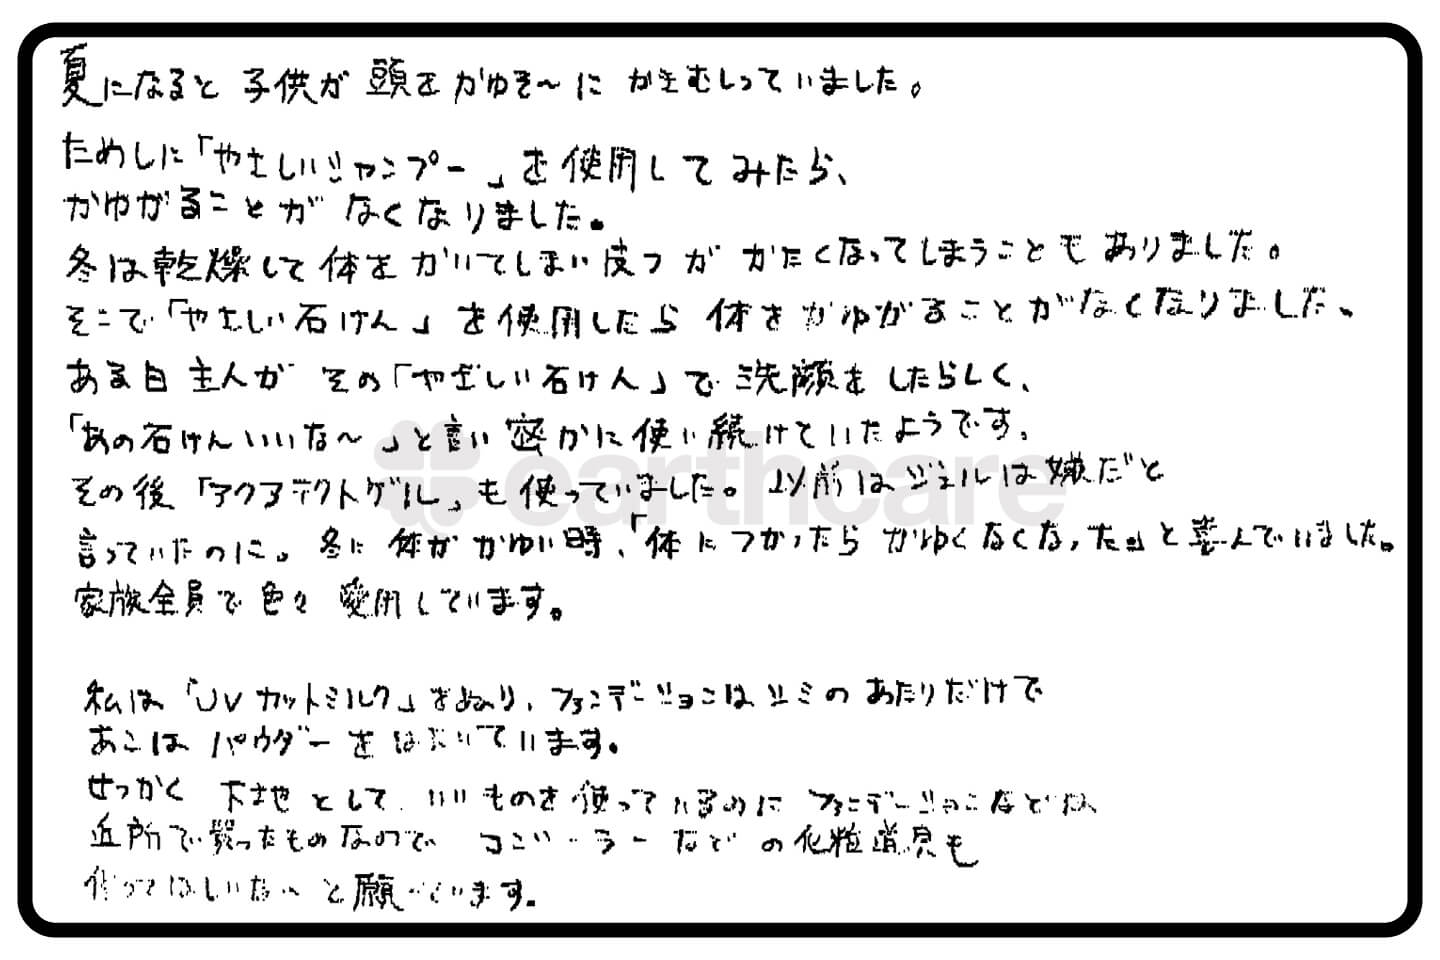 夏になると 子供が 頭を かゆそ～に かきむしっていました。
ためしに「やさしいシャンプー」を使用してみたら、
かゆがることが なくなりました。
冬は乾燥して 体を かいてしまい 皮フが かたくなってしまうことも ありました。
そこで「やさしい石けん」を使用したら 体をかゆがることがなくなりました、
ある日 主人が その「やさしい石けん」で 洗顔を したらしく、
「あの石けんいいな～」と言い 密かに 使い続けていたようです。
その後「アクアテクトゲル」も使っていました。以前はジェルは嫌だと
言っていたのに。冬に 体が かゆい時、「体につかったら かゆくなくなった。」と喜んでいました。
家族全員で 色々 愛用しています。
私は「UVカットミルク」をぬり、ファンデーションはシミの あたりだけで
あとは パウダーを はたいています。
せっかく 下地として いいものを使っているのに ファンデーションなどは、
近所で買ったものなので コンシーラーなどの化粧道具も
作ってほしいな～と願っています。
earthcare